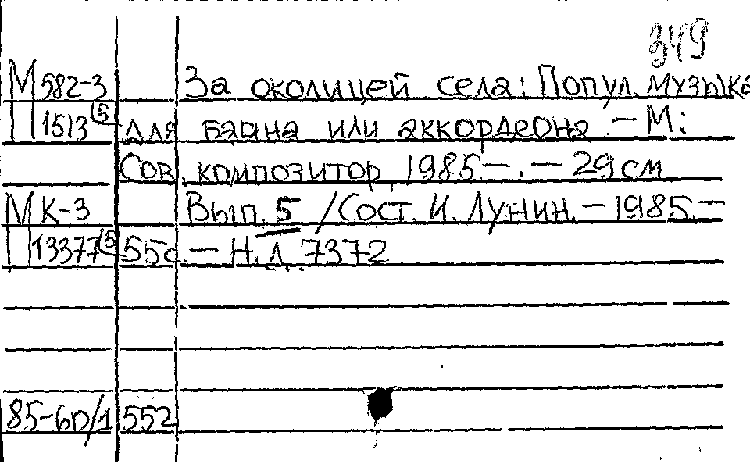 349
М 582-3 За околицей села: Попул. музыка
1513 (5) для баяна или аккордеона. - М.:
Сов. композитор, 1985-. - 29 см
М К-3 Вып. 5 / Сост. И. Лунин. - 1985. -
13377 (5) 55с. - Н.д. 7372
85-6п/1 552